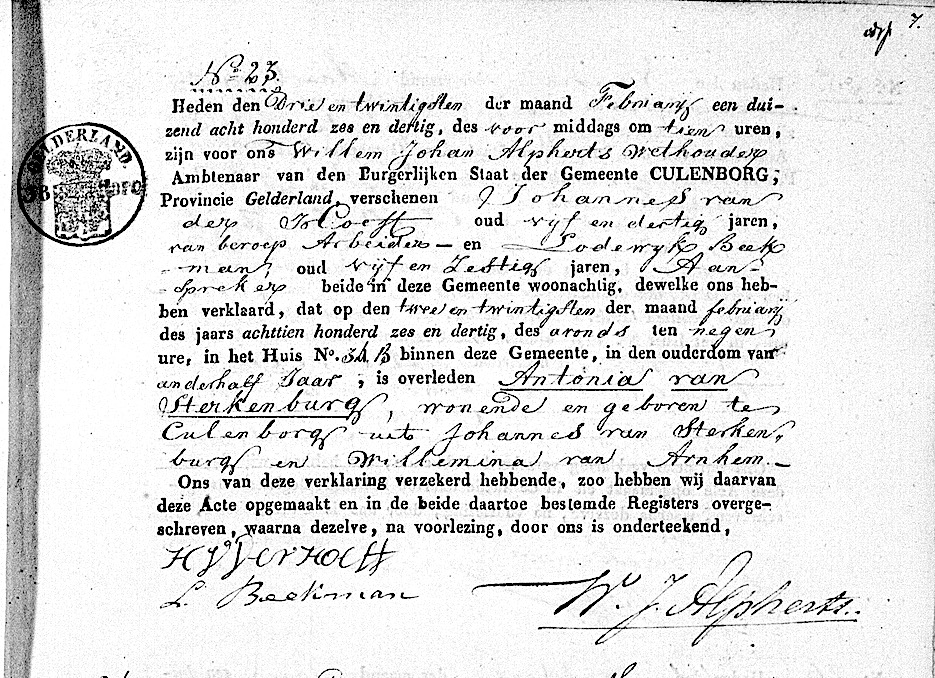 7.
No 23.
Heden den Drie en twintigsten der maand Februarij een dui-
zend acht honderd zes en dertig, des voor middags om tien uren,
zijn voor ons Willem Johan Alpherts Wethouder
Ambtenaar van den Burgerlijken Staat der Gemeente CULENBORG,
Provincie Gelderland, verschenen Johannes van
der oud vijf en dertig jaren,
van beroep Arbeider – en Lodewyk Beek
man, oud vijf en Zestig jaren, Aan-
spreker beide in deze Gemeente woonachtig, dewelke ons heb-
ben verklaard, dat op den twee en twintigsten der maand februarij
des jaars achttien honderd zes en dertig, des avonds ten negen
ure, in het Huis No. B binnen deze Gemeente, in den ouderdom van
anderhalf Jaar, is overleden Antonia van
Sterkenburg, wonende en geboren te
Culenborg uit Johannes van Sterken,,
burg en Willemina van Arnhem.–
Ons van deze verklaring verzekerd hebbende, zoo hebben wij daarvan
deze Acte opgemaakt en in de beide daartoe bestemde Registers overge-
schreven, waarna dezelve, na voorlezing, door ons is onderteekend,
L. Beekman
W. J. Alpherts.
GELDERLAND